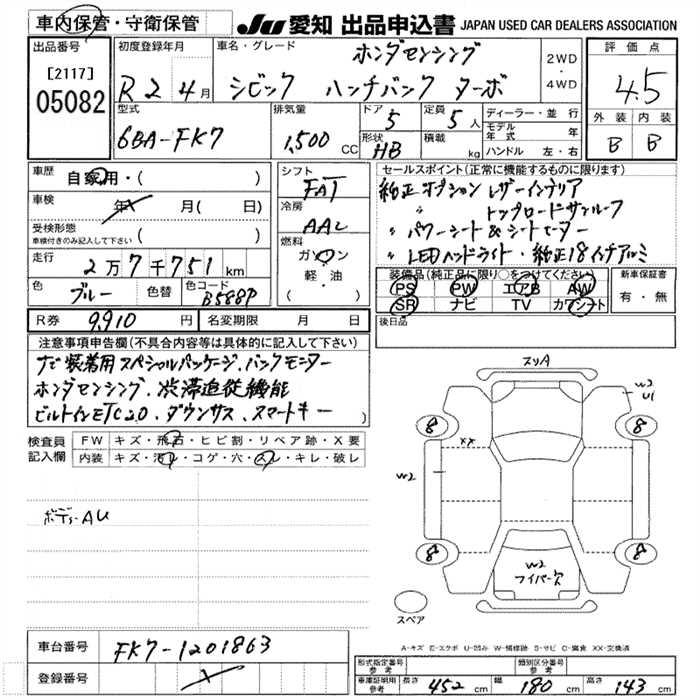 車内保管・守衛保管
JU 愛知 出品申込書 JAPAN USED CAR DEALERS ASSOCIATION
出品番号
[2117]
05082
初度登録年月
R2年4月
車名・グレード
ホンダセンシング
シビック ハッチバック ターボ
2WD
・
4WD
評価点
4.5
外装 内装
B B
型式
6BA-FK7
排気量
1,500 CC
ドア 5
形状 HB
定員 5人
積載 kg
ディーラー・並行
モデル年式 年
ハンドル 左・右
車歴
自家用・( )
車検
年 月( 日)
受検形態
車検付きのみ記入して下さい
( )
走行
2万7千751km
色
ブルー
色替
色コード
B588P
シフト
FAT
冷房
AAC
燃料
ガソリン
軽・油
( )
セールスポイント(正常に機能するものに限ります)
純正オプション レザーインテリア
〃 トップロードサンルーフ
〃 パワーシート&シートヒーター
〃 LEDヘッドライト・純正18インチアルミ
装備品(純正品に限り○をつけてください)
PS PW エアB AW
SR ナビ TV カワシート
新車保証書
有・無
R券 9,910円
名変期限 月 日
後日品
注意事項申告欄(不具合内容等は具体的に記入して下さい)
ナビ装着用スペシャルパッケージ、バックモニター
ホンダセンシング、渋滞追従機能
ビルトインETC2.0、ダウンサス、スマートキー
検査員記入欄
FW キズ・飛石・ヒビ割・リペア跡・X要
内装 キズ・汚レ・コゲ・穴・スレ・キレ・破レ
ボディーAU
スリA
W3
U1
8
8
XX
W2
8
8
W2
ワイパー欠
スペア
A-キズ E-エクボ U-凹み W-補修跡 S-サビ C-腐食 XX-交換済
車台番号 FK7-1201863
登録番号
形式指定番号 参考
類別区分番号 参考
車庫証明用 参考
長さ 452cm
幅 180cm
高さ 143cm